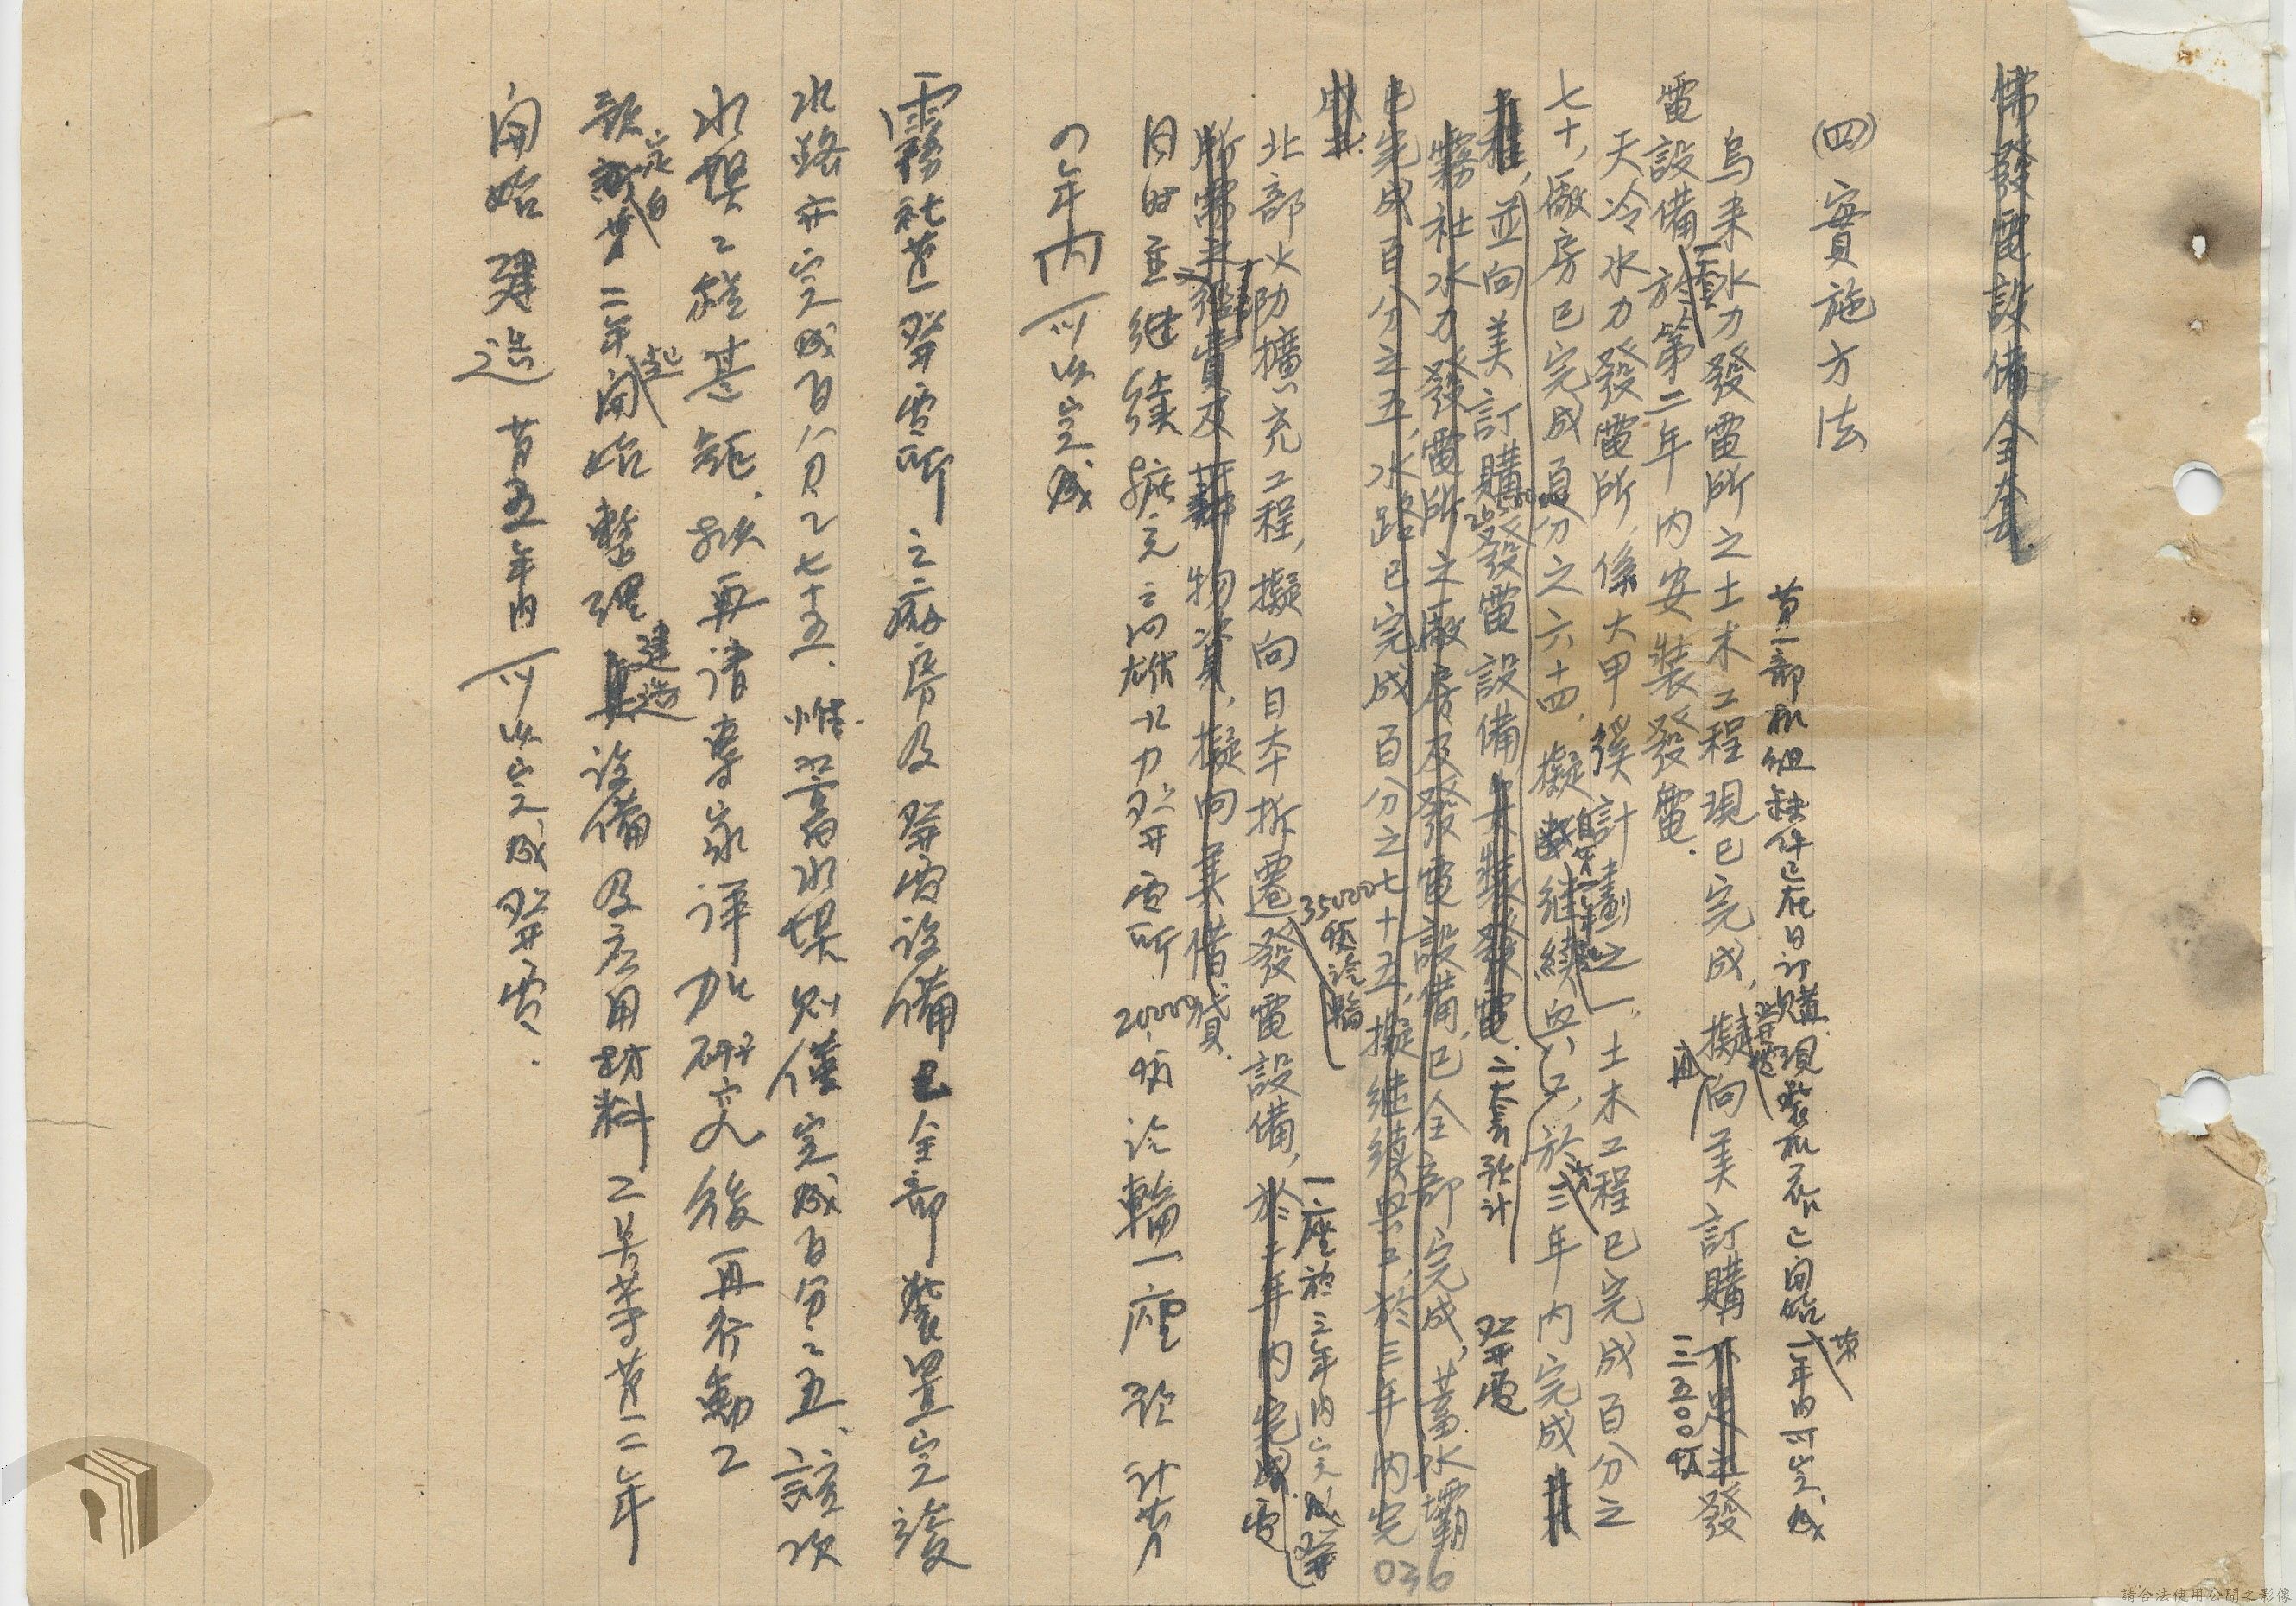 備發電設備全套.
(四)實施方法
第一部机組缺件已在日訂購現裝机衣已開始第一年內可完成
烏來水力發電所之土木工程現已完成,擬再向美訂購二二五〇〇瓩發
電設備一套於第二年內安裝發電.
天冷水力發電所,係大甲溪計劃之一,土木工程已完成百分之
七十,廠房已完成百分之六十四.擬自第一年起繼續興工,於三年內完成
工程,並向美訂購26500發電設備安裝發電.二套預計發電
霧社水力發電所之廠房及發電設備,已全部完成,蓄水壩
已完成百分之五,水路已完成百分之七十五,擬繼續興工,於三年內完
成.
35000瓩汽輪一座於三年內完成發電
北部火力擴充工程,擬向日本拆遷發電設備,於二年內完成
所需之經費及器材物資,擬向美借貸.
同時並继續擴充高雄火力發電所20,000瓩汽輪一座預計第
四年內可以完成
霧社第一發電所之廠房及發電設備已全部裝置完竣
水路亦完成百分之七十五.惟蓄水堤則僅完成百分之五.該次
水堤工程甚鉅.擬再請專家詳加研究後再行動工
預定自第二年起開始整理建造設備及应用材料工具等第二年
開始建造第五年內可以完成發電.
036
請合法使用公開之影像